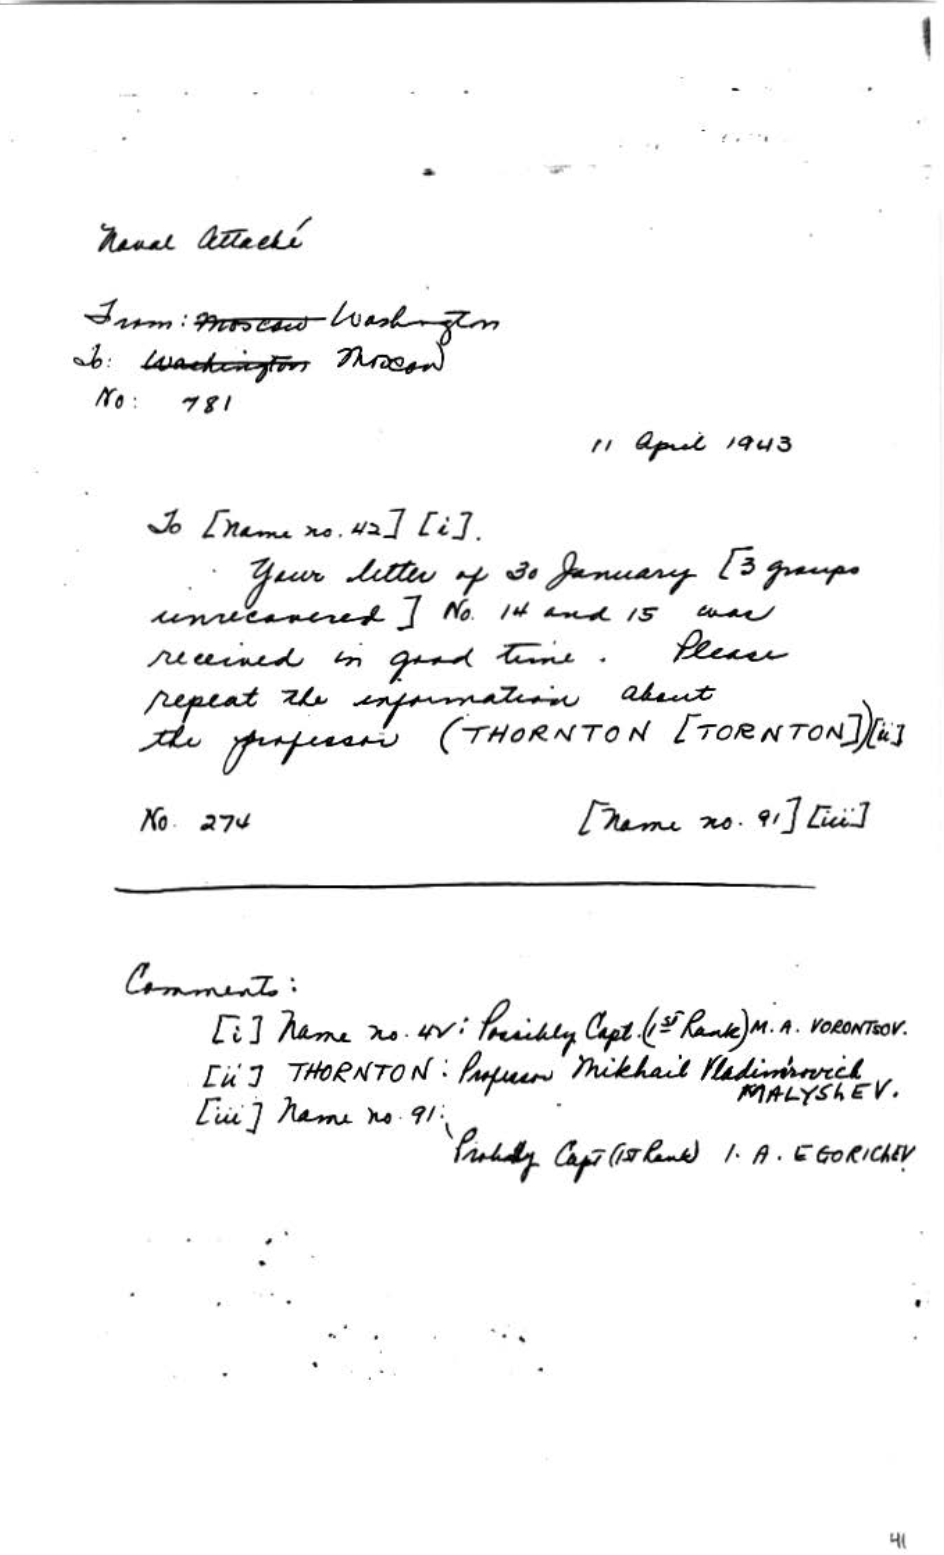 Naval Attaché
From: Moscow Washington
To: Washington Moscow
No: 781
11 April 1943
To [Name no. 42] [i].
Your letter of 30 January [3 groups
unrecovered] No. 14 and 15 was
received in good time. Please
repeat the information about
the professor (THORNTON [TORNTON])[ii]
No. 274 [Name no. 91] [iii]
Comments:
[i] Name no. 42: Possibly Capt. (1st Rank) M. A. VORONTSOV.
[ii] THORNTON: Professor Mikhail Vladimirovich
MALYShEV.
[iii] Name no. 91:
Probably Capt (1st Rank) I. A. EGORIChEV
41